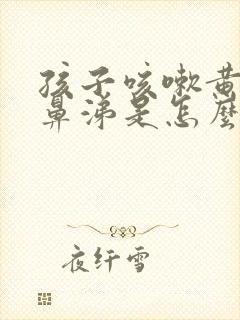 孩子咳嗽黄
鼻涕是怎麼
夜纤雪